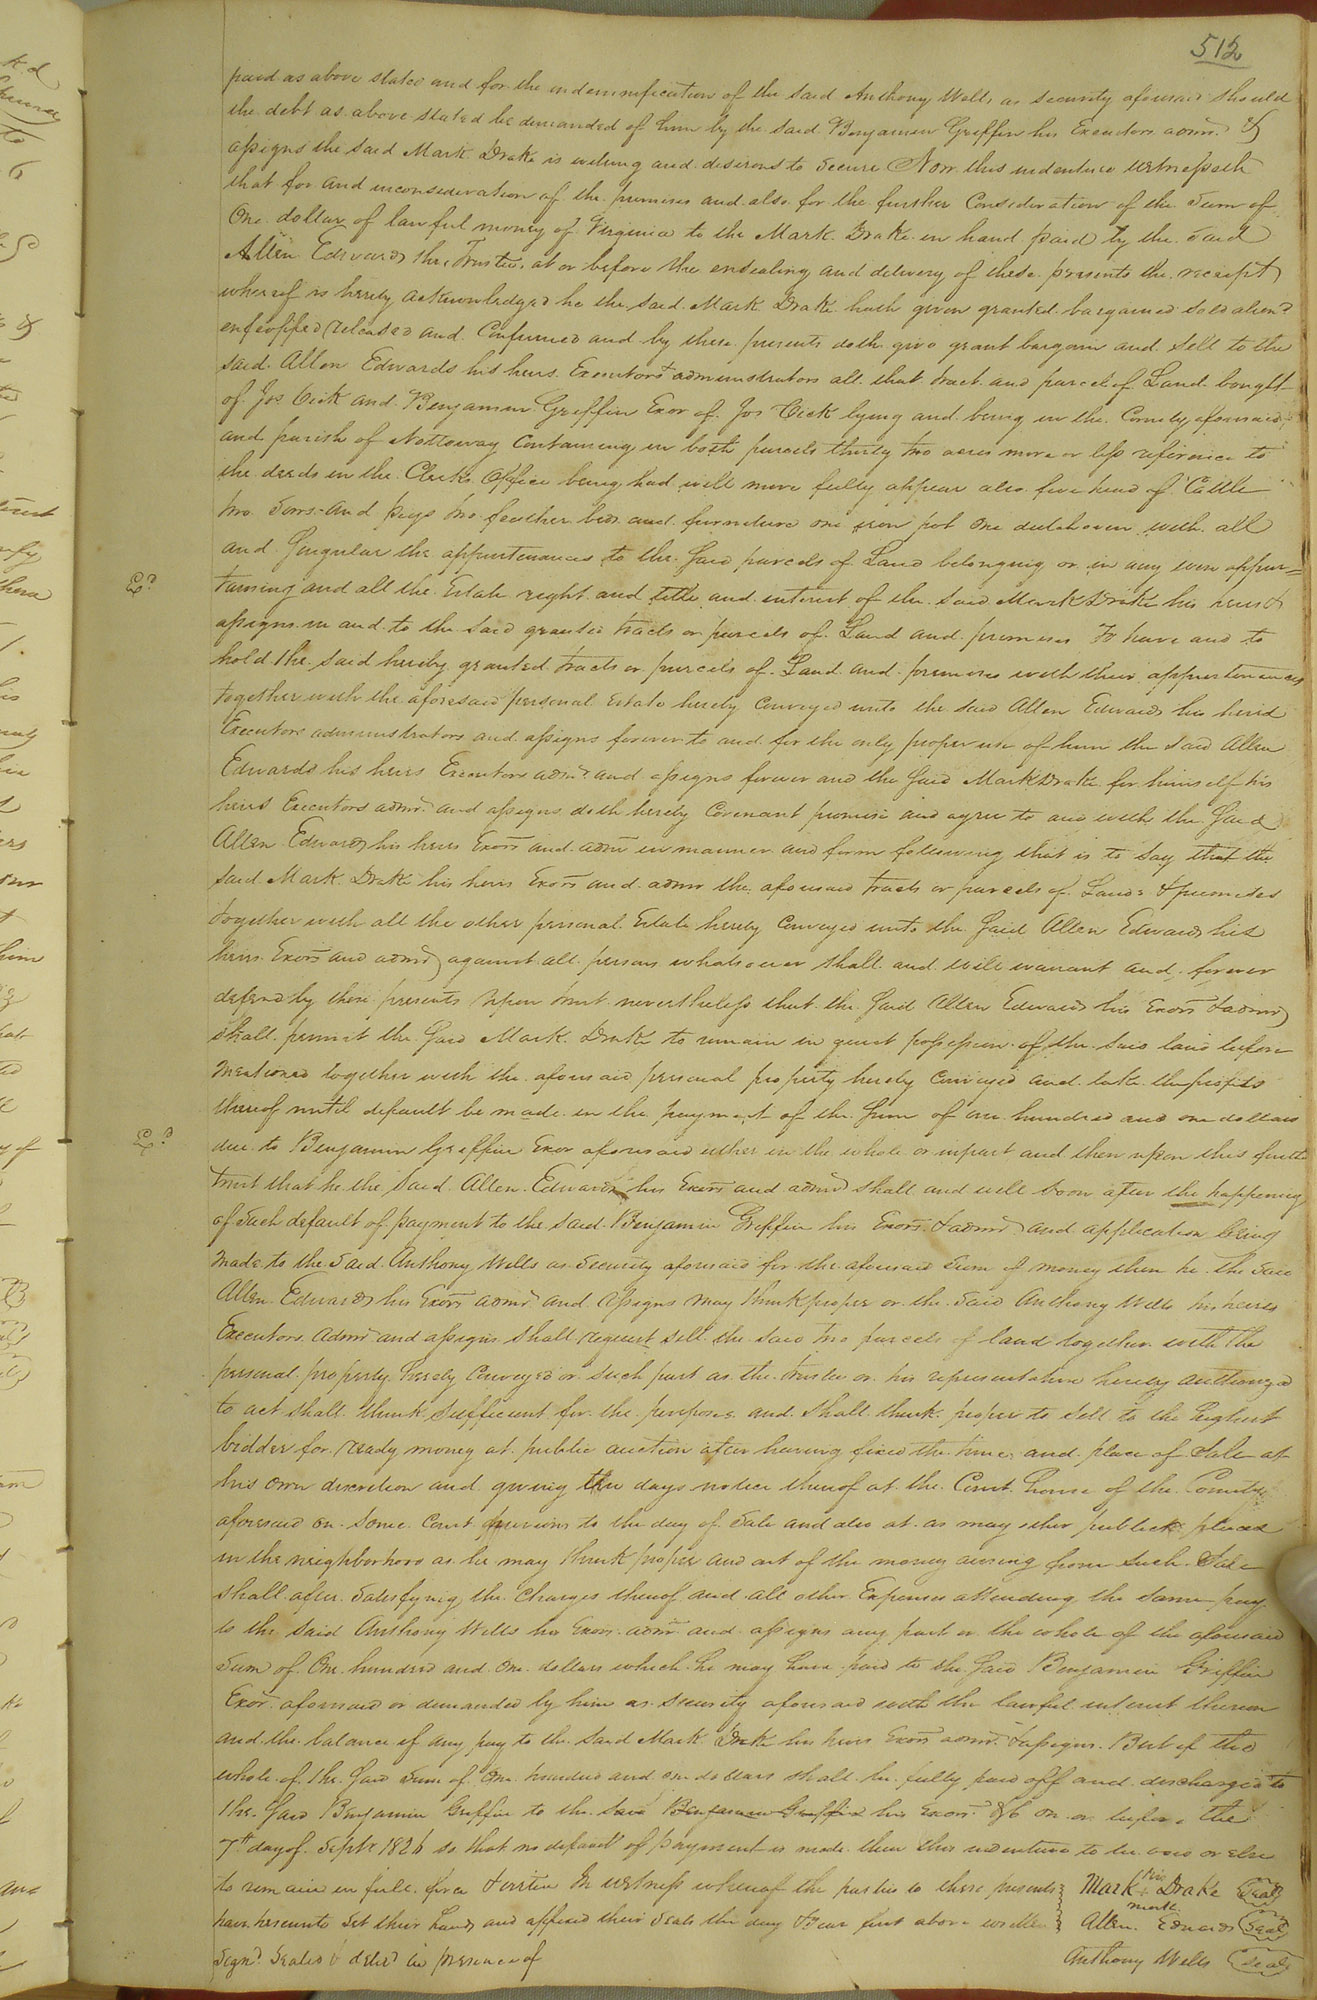 512
paid as above stated and for the indemnification of the said Anthony Wells as security aforesaid should
the debt as above stated be demanded of him by the said Benjamin Griffin his Executors admrs. &
assigns the said Mark Drake is willing and disirous to secure Now this indenture witnesseth
that for and inconsideration of the premises and also for the further Consideration of the sum of
One dollar of lawful money of Virginia to the Mark Drake in hand paid by the said
Allen Edwards the Trustee at or before the ensealing and delivery of these presents the receipt
whereof is hereby acknowledged he the said Mark Drake hath given granted bargained sold aliend
enfeoffed released and Confirmed and by these presents doth give grant bargain and sell to the
said Allen Edwards his heirs Executors administrators all that tract and parcel of Land bought
of Jos and Benjamin Griffin Exor of Jos lying and being in the County aforesaid
and parish of Nottoway Containing in both parcels thirty two acres more or less reference to
the deeds in the Clerks Office being had will more fully appear also five head of Cattle
two Sows and pigs two feather beds and furniture one iron pot one dutch oven with all
and Singular the appurtenances to the said parcels of Land belonging or in any wise apper=
Ed.
taining and all the Estate right and title and interest of the said Mark Drake his heirs &
assigns in and to the said granted tracts or parcels of Land and premises To have and to
hold the said hereby granted tracts or parcels of Land and premises with their appurtenances
together with the aforesaid personal Estate hereby Conveyed unto the said Allen Edwards his heirs
Executors administrators and assigns forever to and for the only proper use of him the said Allen
Edwards his heirs Executors admrs and assigns forever and the said Mark Drake for himself his
heirs Executors admrs. and assigns doth hereby Covenant promise and agree to and with the said
Allen Edwards his heirs Exors and admrs in manner and form following that is to say that the
said Mark Drake his heirs Exors and admrs the aforesaid tracts or parcels of Land & premises
together with all the other personal Estate hereby Conveyed unto the said Allen Edwards his
heirs Exors and admrs against all persons whatsoever shall and will warrant and forever
defend by these presents Upon trust nevertheless that the said Allen Edwards his Exors & admrs
shall permit the said Mark Drake to remain in quiet possession of the said land before
Mentioned together with the aforesaid personal property hereby Conveyed and take the profits
thereof until default be made in the payment of the sum of one hundred and one dollars
Ed.
due to Benjamin Griffin Exor aforesaid either in the whole or inpart and then upon this further
trust that he the said Allen Edwards his Exors and admrs shall and will soon after the happening
of such default of payment to the said Benjamin Griffin his Exors & admrs and application being
made to the said Anthony Wells as Security aforesaid for the aforesaid Sum of money then he the said
Allen Edwards his Exors admrs and assigns may think proper or the said Anthony Wells his heirs
Executors Admrs and assigns shall request sell the said two parcels of land together with the
personal property hereby Conveyed or such part as the trustee or his representative hereby authorized
to act shall think sufficient for the purpose and shall think proper to sell to the highest
bidder for ready money at public auction after having fixed the time and place of Sale at
his own discretion and giving ten days notice thereof at the Court house of the County
aforesaid on some Court previous to the day of Sale and also at as may other publick places
in the neighborhood as he may think proper and out of the money arising from such Sale
shall after satisfying the Charges thereof and all other Expenses attending the same pay
to the said Anthony Wells his Exors admrs and assigns any part or the whole of the aforesaid
Sum of One hundred and one dollars which he may have paid to the said Benjamin Griffin
Exor aforesaid or demanded by him as security aforesaid with the lawful interest thereon
and the balance if any pay to the said Mark Drake his heirs Exors admrs. & assigns. But if the
whole of the said sum of One hundred and one dollars shall be fully paid off and discharged to
the said Benjamin Griffin to the said Benjamin Griffin his Exors. &c on or before the
7th day of Septr 1826 so that no default of payment is made then this indenture to be void or else
to remain in full force & virtue In witness whereof the parties to these presents
have hereunto set their hands and affixed their seals the day & year first above written
Signd. Sealed & deld. in presence of
his
Mark + Drake (Seal)
mark
Allen Edwards (Seal)
Anthony Wells (Seal)